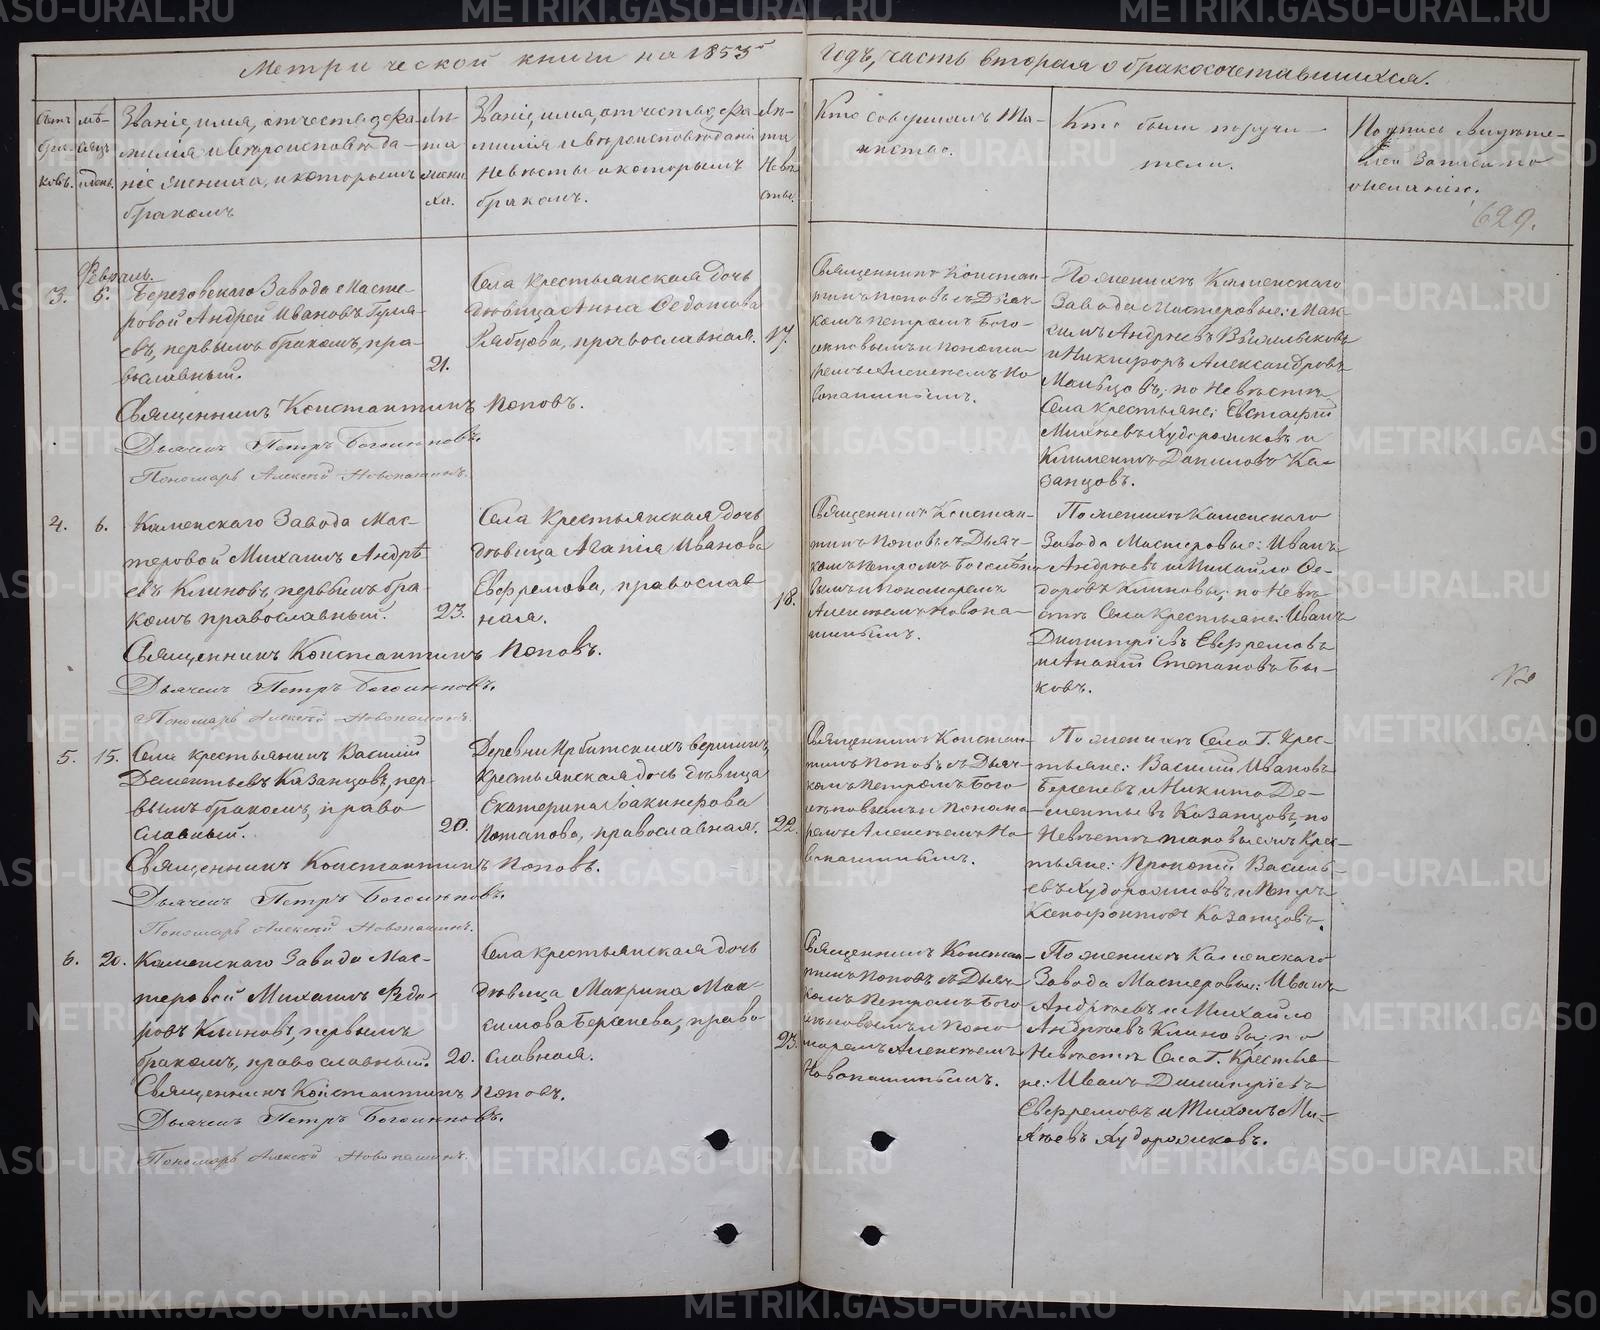 Метрической книги на 1853й
годъ, часть вторая о бракосочетавшихся.
Счетъ
браковъ.
Мѣсяцъ
и день.
Званіе, имя, отчество, фамилія и вѣроисповѣданіе жениха, и которымъ
бракомъ
Лѣта
жениха.
Званіе, имя, отчество, фамилія и вѣроисповѣданіе
невѣсты и которымъ
бракомъ.
Лѣта
Невѣсты.
Кто совершалъ Таинство.
Кто были поручители.
Подпись свидѣтелей записи по
желанію.
629.
Февраль.
3.
6.
Березовскаго Завода Мастеровой Андрей Ивановъ
первымъ бракомъ, православный.
21.
Села крестьянская дочь
дѣвица Анна Федотова
Рябцова, православная.
17.
Священникъ Константинъ Поповъ съ Дьячкомъ Петромъ
и пономаремъ Алексѣемъ Новопашинымъ.
По женихѣ Каменскаго
Завода Мастеровые: Максимъ Андреевъ
и Никифоръ Александровъ
по Невѣстѣ
Села крестьяне: Евстафій
Михѣевъ Худорожковъ и
Климентъ Даниловъ Казанцовъ.
Священникъ Константинъ Поповъ.
Дьячекъ Петръ
Пономарь Алексѣй Новопашинъ.
4.
6.
Каменскаго Завода Мастеровой Михаилъ Андреевъ Клиновъ, первымъ бракомъ православный.
23.
Села Крестьянская дочь
дѣвица Агапія Иванова
Евфремова, православная.
18.
Священникъ Константинъ Поповъ съ Дьячкомъ Петромъ
и Пономаремъ
Алексѣемъ Новопашинымъ.
По женихѣ Каменскаго
Завода Мастеровые: Иванъ
Андреевъ и Михайло Федоровъ Клиновы; по Невѣстѣ Села Крестьяне: Иванъ
Димитріевъ Евфремовъ
и Степановъ Быковъ.
Священникъ Константинъ Поповъ.
Дьячекъ Петръ
Пономарь Алексѣй Новопашинъ.
5.
15.
Села крестьянинъ Василій
Дементьевъ Казанцовъ, первымъ бракомъ, православный.
20.
Деревни Ирбитскихъ вершинъ
крестьянская дочь дѣвица
Екатерина Іакинфова
Потапова, православная.
22.
Священникъ Константинъ Поповъ съ Дьячкомъ Петромъ
и Пономаремъ Алексѣемъ Новопашинымъ.
По женихѣ Села Г. Крестьяне: Василій Ивановъ
Берсеневъ и Никита Дементьевъ Казанцовъ, по
Невѣстѣ таковые жъ Крестьяне: Прокопій Васильевъ Худорожковъ и Петръ
Ксенофонтовъ Казанцовъ.
Священникъ Константинъ Поповъ.
Дьячекъ Петръ
Пономарь Алексѣй Новопашинъ.
6.
20.
Каменскаго Завода Мастеровой Михаилъ Федоровъ Клиновъ, первымъ
бракомъ, православный.
20.
Села крестьянская дочь
дѣвица Макрина Максимова Берсенева, православная.
23.
Священникъ Константинъ Поповъ съ Дьячкомъ Петромъ
и Пономаремъ Алексѣемъ
Новопашинымъ.
По женихѣ Каменскаго
Завода Мастеровые: Иванъ
Андреевъ и Михайло
Андреевъ Клиновы, по
Невѣстѣ Села Г. Крестьяне: Иванъ Димитріевъ
Евфремовъ и Тихонъ Михѣевъ Худорожковъ.
Священникъ Константинъ Поповъ.
Дьячекъ Петръ
Пономарь Алексѣй Новопашинъ.
METRIKI.GASO-URAL.RU